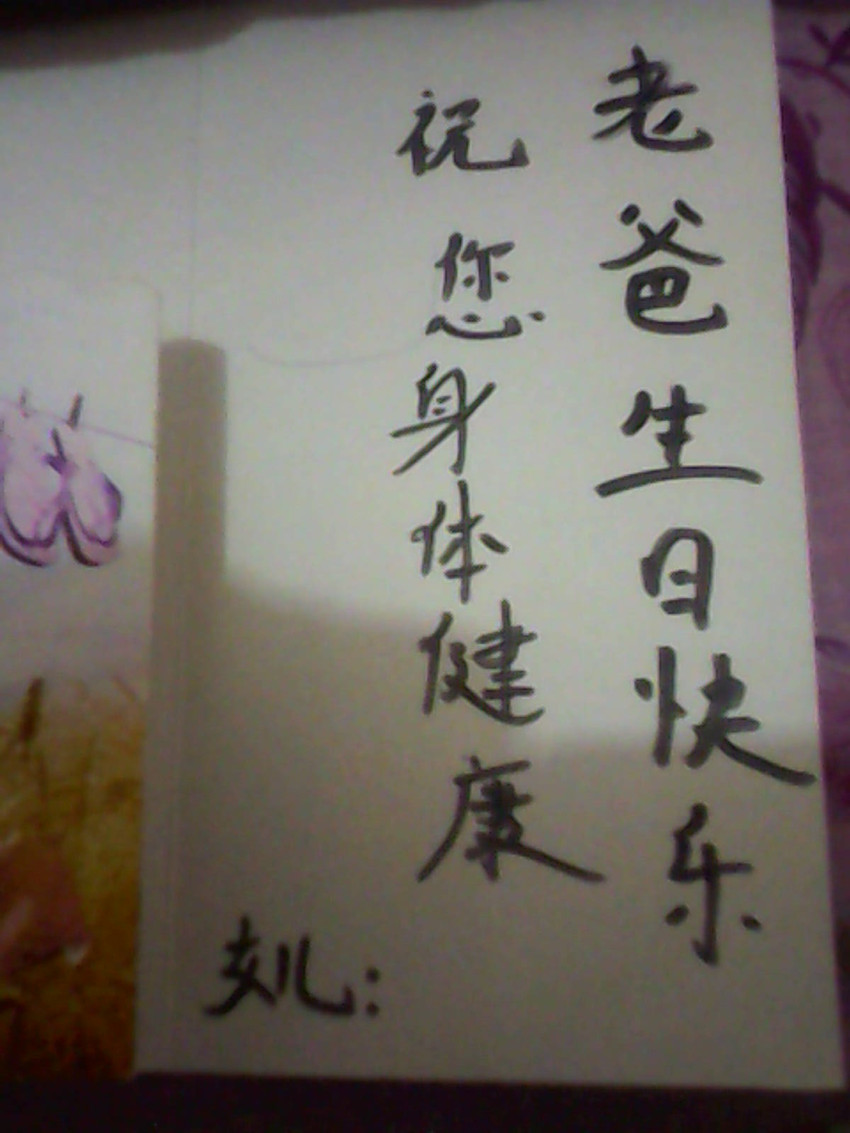 老爸生日快乐
祝您身体健康
女儿: